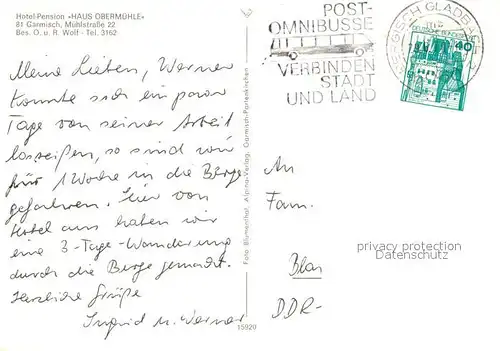 Hotel-Pension «HAUS OBERMÜHLE»
81 Garmisch, Mühlstraße 22
Bes. O. u. R. Wolf - Tel. 3162
POST-
OMNIBUSSE
VERBINDEN
STADT
UND LAND
BERGISCH GLADBACH
DEUTSCHE BUNDESPOST
40
Meine Lieben, Werner
konnte sich ein paar
Tage von seiner Arbeit
losreißen, so sind wir
für 1 Woche in die Berge
gefahren. Hier vom
Hotel aus haben wir
eine 3-Tage-Wanderung
durch die Berge gemacht.
Herzliche Grüße
Ingrid u. Werner
Foto Blumenthal, Alpina-Verlag, Garmisch-Partenkirchen
15920
An
Fam.
privacy protection
Datenschutz
DDR-